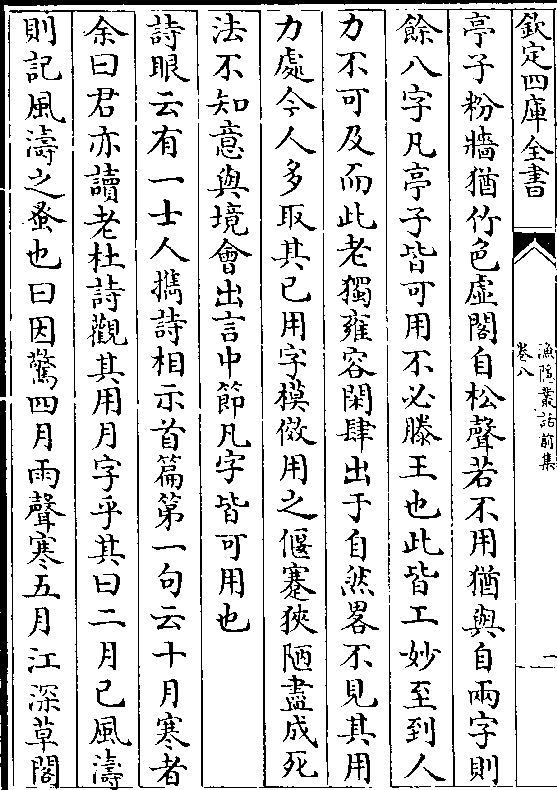 欽定四庫全書
漁隱叢話前集
卷八
一
亭子粉牆猶竹色虛閣自松聲若不用猶與自兩字則
餘八字凡亭子皆可用不必滕王也此皆工妙至到人
力不可及而此老獨雍容閑肆出于自然畧不見其用
力處今人多取其已用字模倣用之偃蹇狹陋盡成死
法不知意與境會出言中節凡字皆可用也
詩眼云有一士人攜詩相示首篇第一句云十月寒者
余曰君亦讀老杜詩觀其用月字乎其曰二月已風濤
則記風濤之蚤也曰因驚四月雨聲寒五月江深草閣